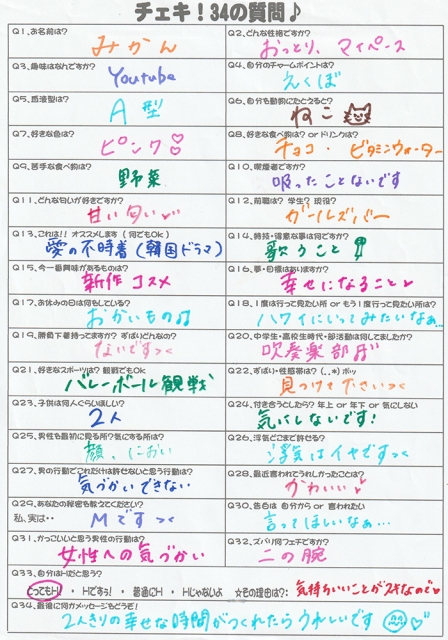 チェキ！34の質問♪
Q1.お名前は？
みかん
Q2.どんな性格ですか？
おっとり、マイペース
Q3.趣味はなんですか？
Youtube
Q4.自分のチャームポイントは？
えくぼ
Q5.血液型は？
A型
Q6.自分を動物にたとえると？
ねこ
Q7.好きな色は？
ピンク♡
Q8.好きな食べ物は？ or ドリンクは？
チョコ・ビタミンウォーター
Q9.苦手な食べ物は？
野菜
Q10.喫煙者ですか？
吸ったことないです
Q11.どんな匂いが好きですか？
甘い匂い♡
Q12.前職は？ 学生？ 現役？
ガールズバー
Q13.これは！！ オススメします（何でもOK）
愛の不時着（韓国ドラマ）
Q14.特技・得意な事は何ですか？
歌うこと
Q15.今一番興味があるものは？
新作コスメ
Q16.夢・目標はありますか？
幸せになること♥
Q17.お休みの日は何をしている？
おかいもの♫
Q18.1度は行って見たい所 or もう1度行って見たい所は？
ハワイにいってみたいなぁ…
Q19.勝負下着持ってますか？ ずばりどんなの？
ないですっ
Q20.中学生・高校生時代・部活動は何してましたか？
吹奏楽部♫
Q21.好きなスポーツは？ 観戦でもOK
バレーボール観戦
Q22.ずばり・性感帯は？ (..*) ポッ
見つけて下さいっ
Q23.子供は何人ぐらいほしい？
2人
Q24.付き合うとしたら？ 年上 or 年下 or 気にしない
気にしないです！
Q25.男性を最初に見る所？気にする所は？
顔、におい
Q26.浮気どこまで許せる？
浮気はイヤですっ
Q27.男の行動でこれだけは許せないと思う行動は？
気づかいできない
Q28.最近言われてうれしかったことは？
かわいい♡
Q29.あなたの秘密を教えてください？
私、実は‥ Mですっ
Q30.告白は 自分から or 言われたい
言ってほしいなぁ…
Q31.かっこいいと思う男性の行動は？
女性への気づかい
Q32.ズバリ何フェチですか？
二の腕
Q33.自分はHだと思う？
とってもH！ ・ Hですぅ！ ・ 普通にH ・ Hじゃないよ 女その理由は？： 気持ちいいことがスキなので♥
Q34.最後に何かメッセージをどうぞ！
2人きりの幸せな時間がつくれたらうれしいです